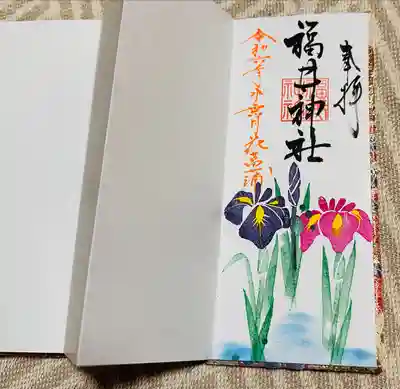 奉拝
福井神社
令和六年水無月花菖蒲